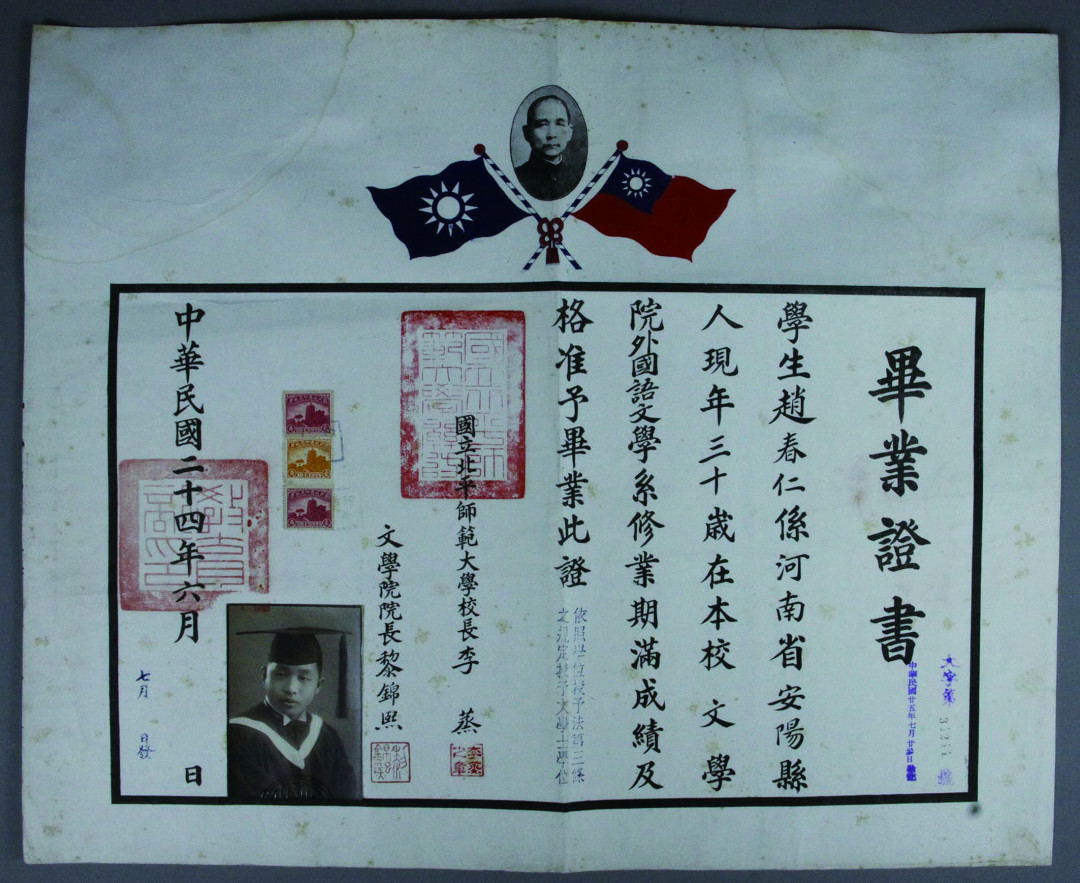 畢業證書
文字第
中華民國廿五年七月廿
學生趙春仁係河南省安陽縣
人現年三十歲在本校文學
院外國語文學系修業期滿成績及
格准予畢業此證
依照學位授予法第三條
之規定授予文學士學位
國立北平師範大學校長李蒸
李蒸之章
文學院院長黎錦熙
黎錦熙
中華民國二十四年六月 日
七月 日發
國立北平師範大學
教育部印